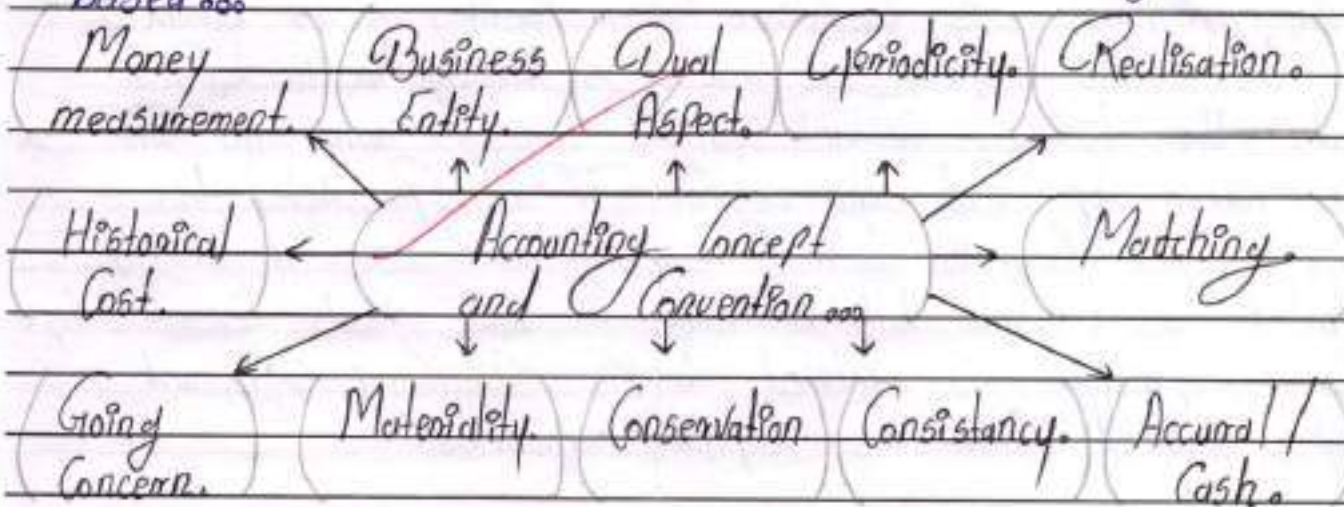 based...
Money
measurement.
Business
Entity.
Dual
Aspect.
Periodicity.
Realisation.
Historical
Cost.
Accounting Concept
and Convention...
Matching.
Going
Concern.
Materiality.
Conservation
Consistancy.
Accural /
Cash.